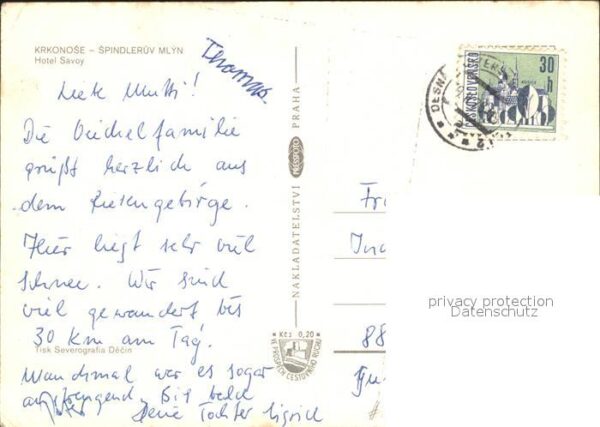 KRKONOŠE – ŠPINDLERŮV MLÝN
Hotel Savoy
Thomas
Liebe Mutti!
Die Deichelfamilie
grüßt herzlich aus
dem Riesengebirge.
Hier liegt sehr viel
Schnee. Wir sind
viel gewandert bis
30 km am Tag.
Tisk Severografia Děčín
Manchmal war es sogar
anstrengend. Bis bald
Deine Tochter Sigrid
NAKLADATELSTVÍ PRESSFOTO PRAHA
Kčs 0,20
VE PROSPĚCH CESTOVNÍHO RUCHU
30
h
ČESKOSLOVENSKO
DESNÁ
Fr
88
privacy protection
Datenschutz